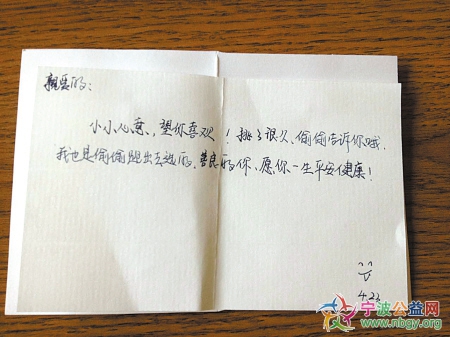 亲爱的：
小小心意，望你喜欢！排了很久、偷偷告诉你哦，
我也是偷偷跑出去买的。善良的你、愿你一生平安健康！
4.22
宁波公益网
www.nbgy.org